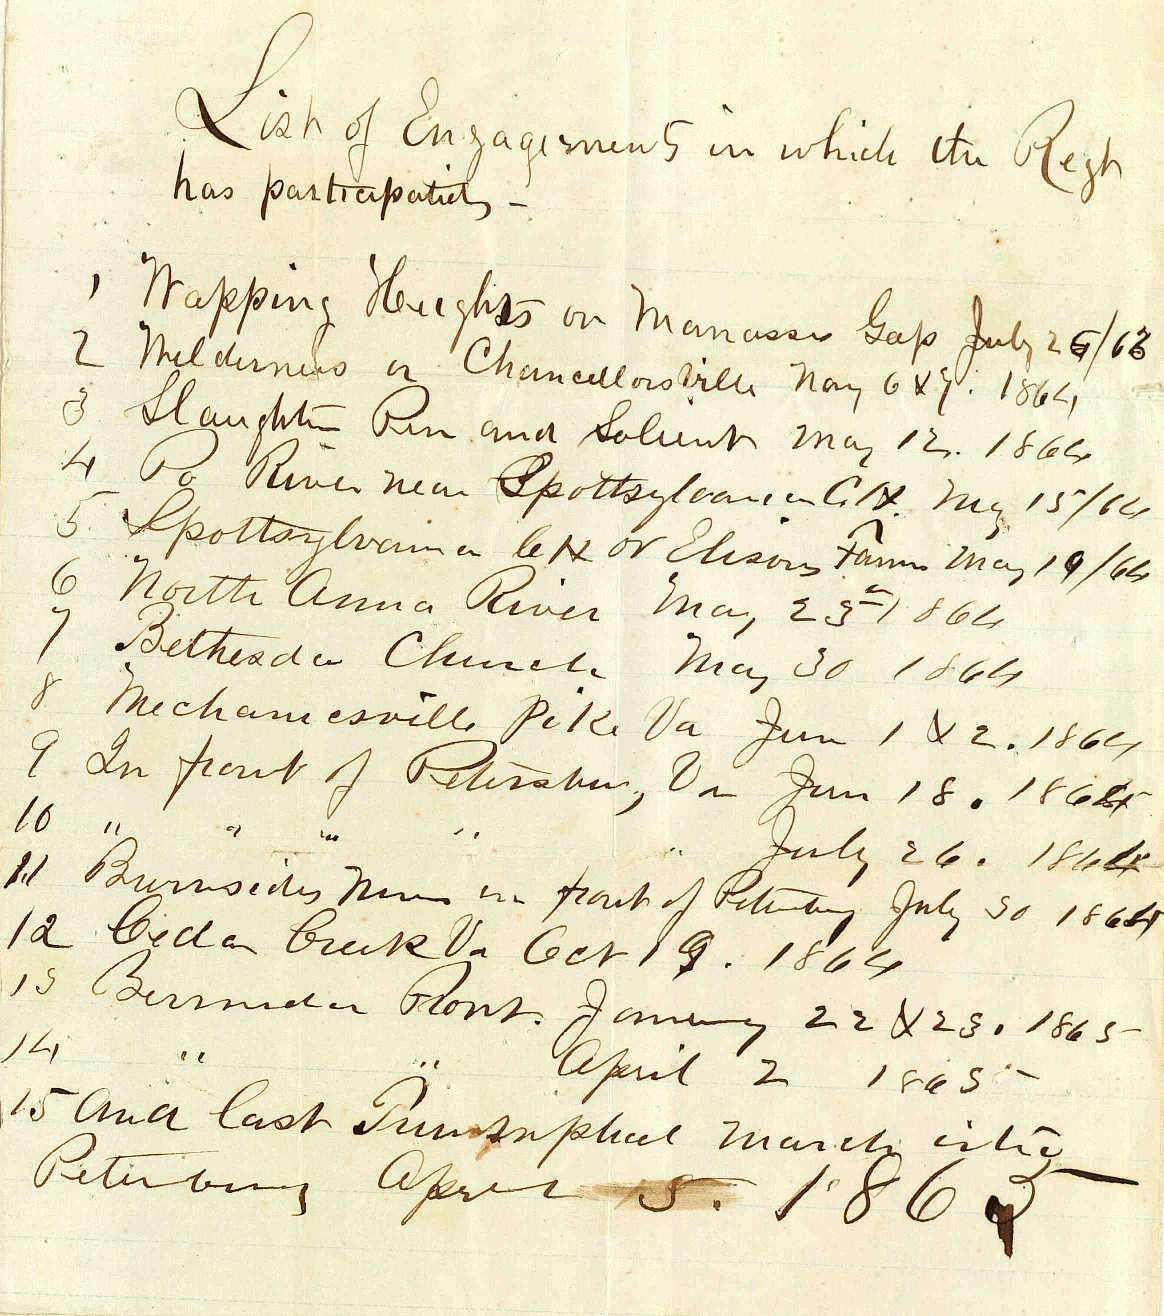 List of Engagements in which the Regt
has participated -
1 Wapping Heights or Manassas Gap July 26/63
2 Wilderness or Chancellorsville May 6 & 7. 1864
3 Slaughter Pen and Salient May 12. 1864
4 Po River near Spottsylvania C.H. May 15/64
5 Spottsylvania CH or Elisons Farm May 19/64
6 North Anna River May 23rd 1864
7 Bethesda Church May 30 1864
8 Mechanicsville Pike Va Jun 1 & 2. 1864
9 In front of Petersburg Va Jun 18. 1864
10 " " " " " July 26. 1864
11 Burnsides Mine in front of Petersburg July 30 1864
12 Cedar Creek Va Oct 19. 1864
13 Bermuda Front. January 22 & 23. 1865
14 " " April 2 1865
15 And last Triumphal march into
Petersburg April 5. 1865